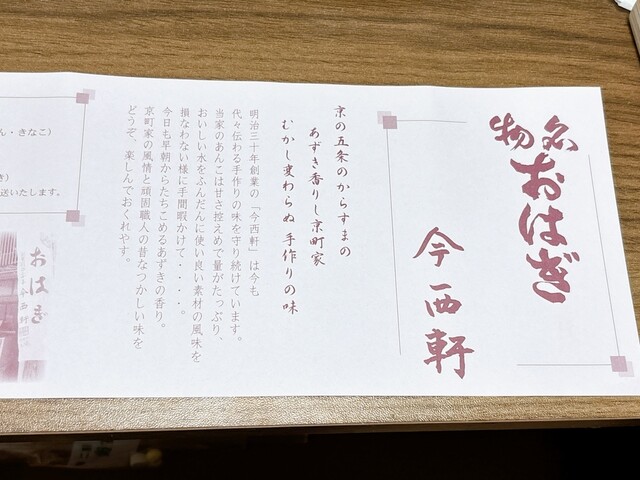 名物
おはぎ
今西軒
京の五条のからすまの
あずき香りし京町家
むかし変わらぬ 手作りの味
明治三十年創業の「今西軒」は今も
代々伝わる手作りの味を守り続けています。
当家のあんこは甘さ控えめで量がたっぷり、
おいしい水をふんだんに使い良い素材の風味を
損なわない様に手間暇かけて・・・。
今日も早朝からたちこめるあずきの香り。
京町家の風情と頑固職人の昔なつかしい味を
どうぞ、楽しんでおくれやす。
ん・きなこ)
き)
送いたします。
おはぎ
今西軒